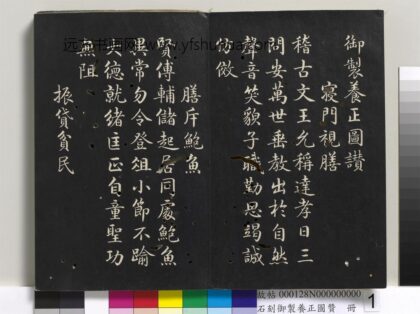 御製養正圖讚
寢門視膳
稽古文王允稱達孝日三
問安萬世垂教出於自然
聲音笑貌子職勤思竭誠
仿傚
膳斥鮑魚
賢傅輔儲起居同處鮑魚
異常勿令登俎小節不踰
大德就緒匡正自童聖功
無阻
振貸貧民
故帖 000128N000000000
石刻御製養正圖贊 冊
1